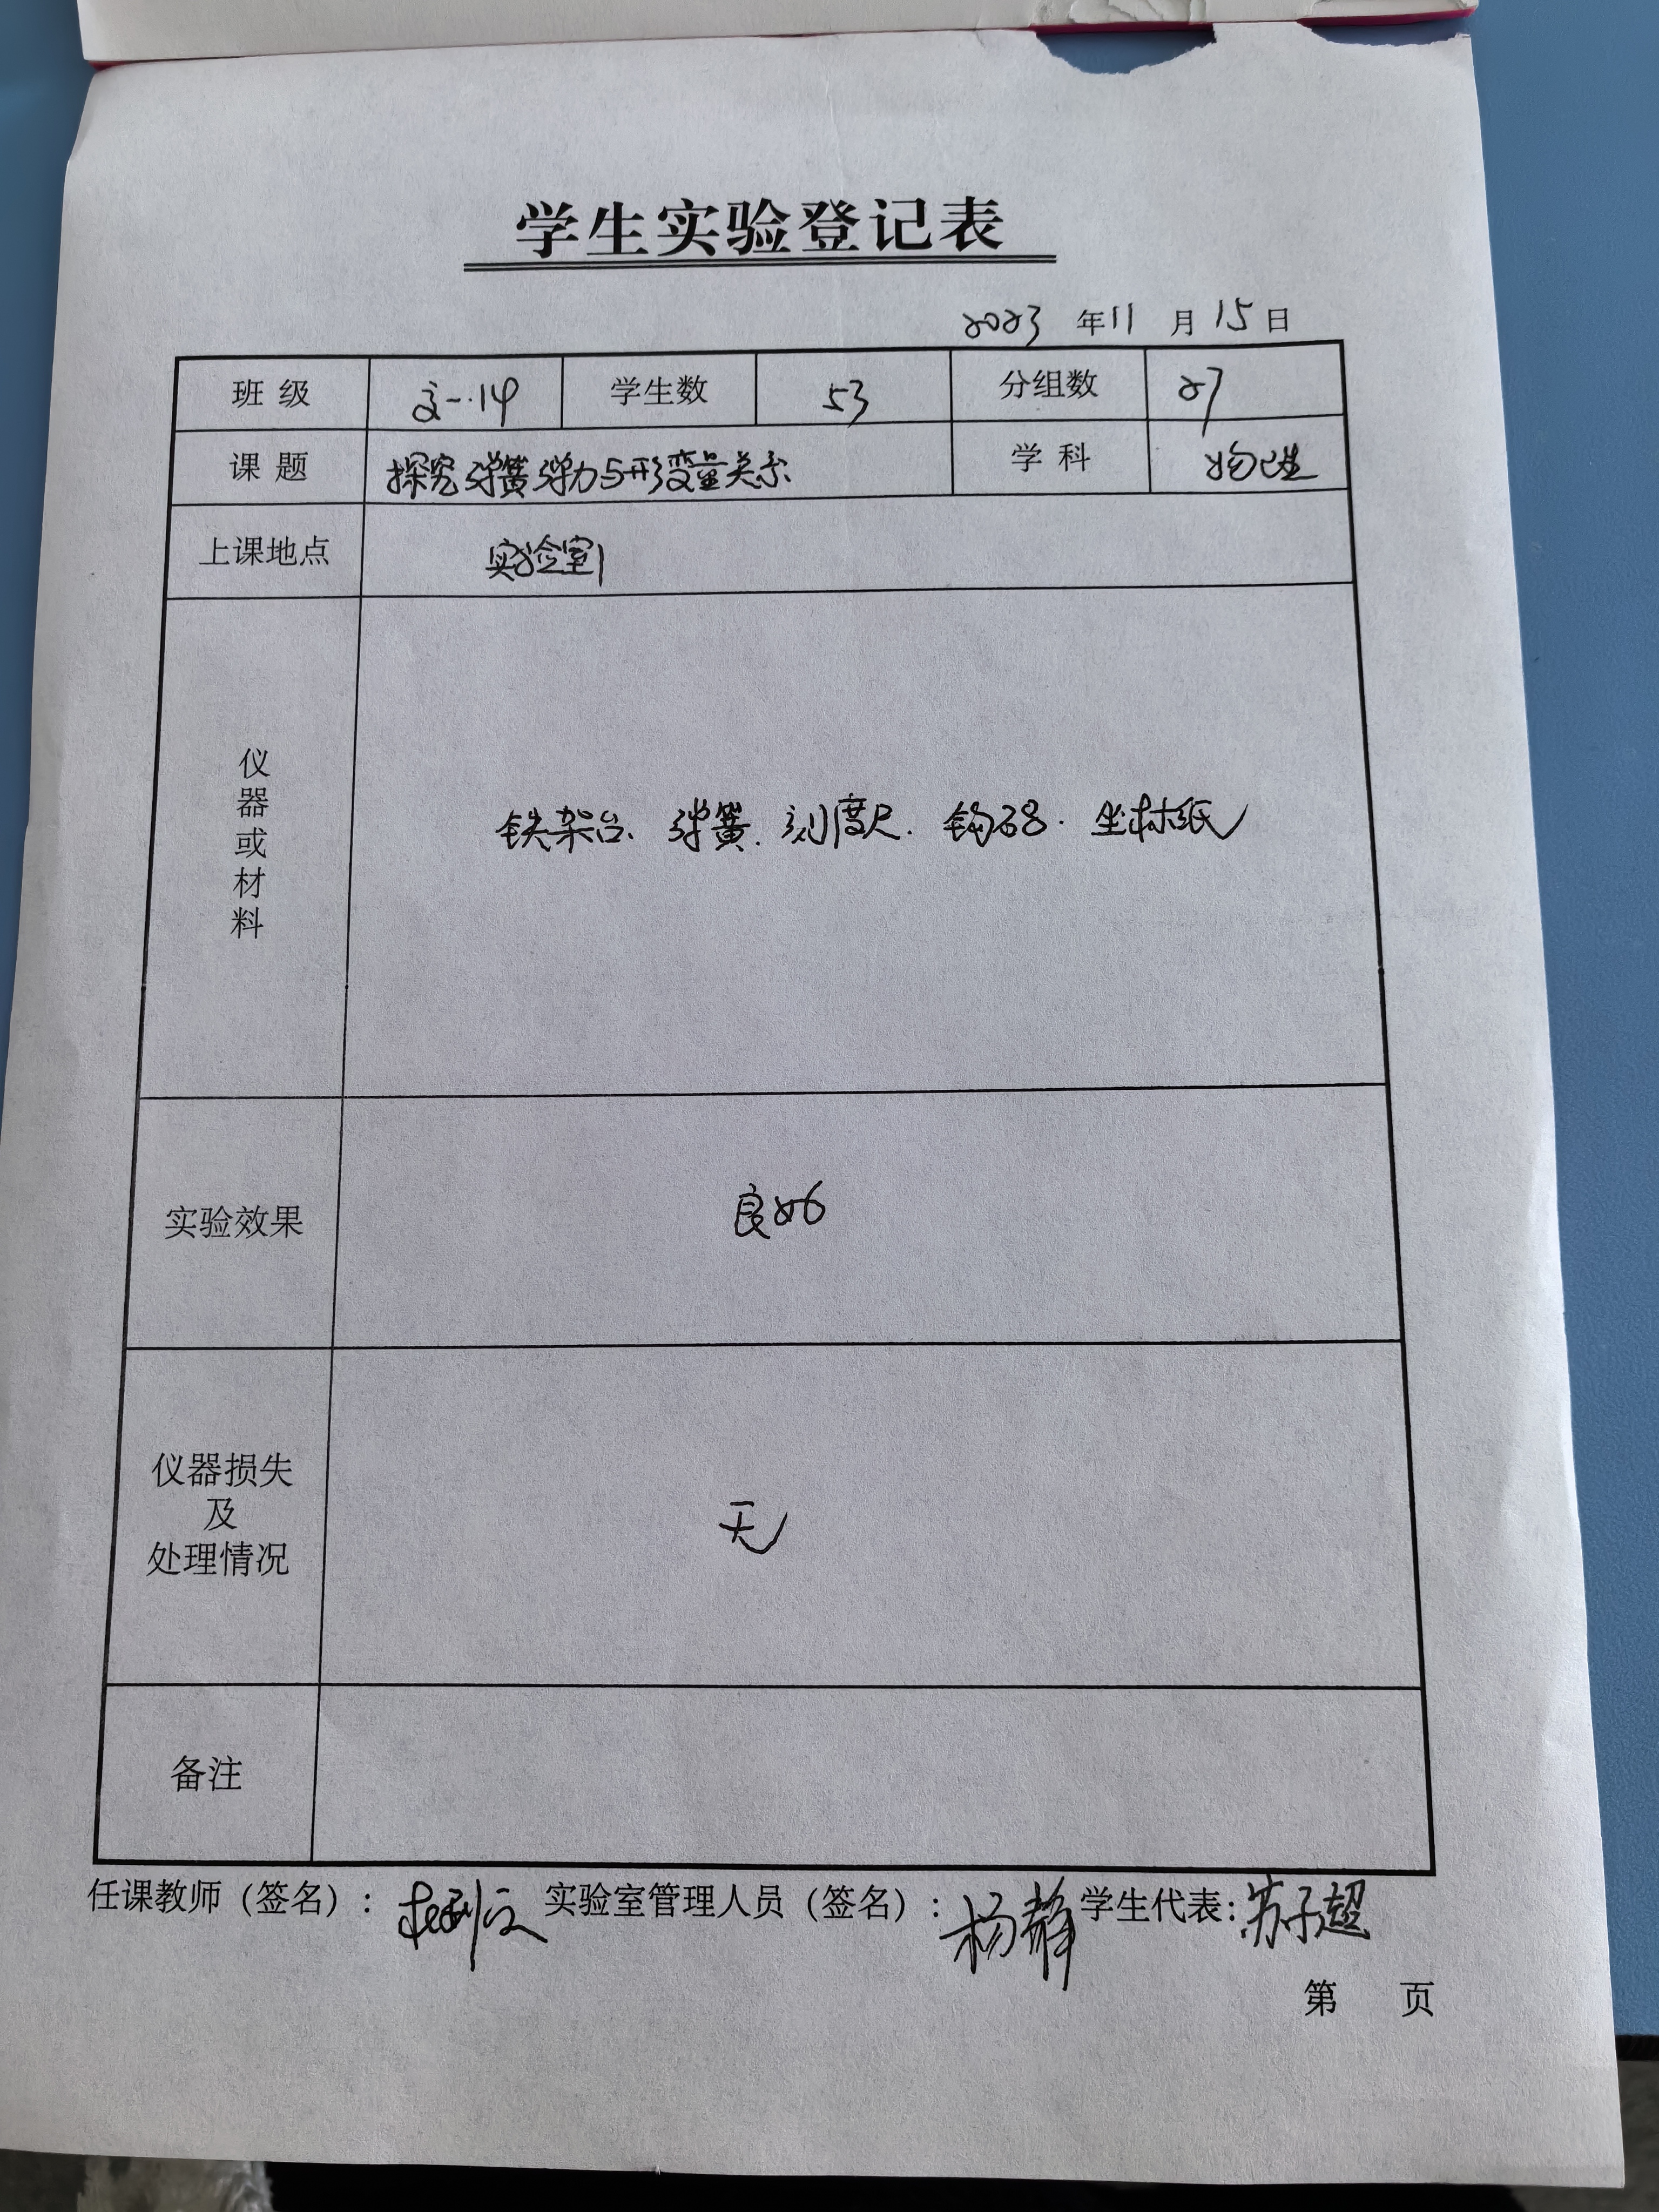 学生实验登记表
2023 年 11 月 15 日
班 级 14 学生数 53 分组数 27
课 题 探究弹簧弹力与形变量关系 学 科 物理
上课地点 实验室1
仪器或材料 铁架台、弹簧.刻度尺.钩码.坐标纸
实验效果 良好
仪器损失
及
处理情况 无
备注
任课教师（签名）: 实验室管理人员（签名）: 杨静 学生代表: 苏子超
第 页